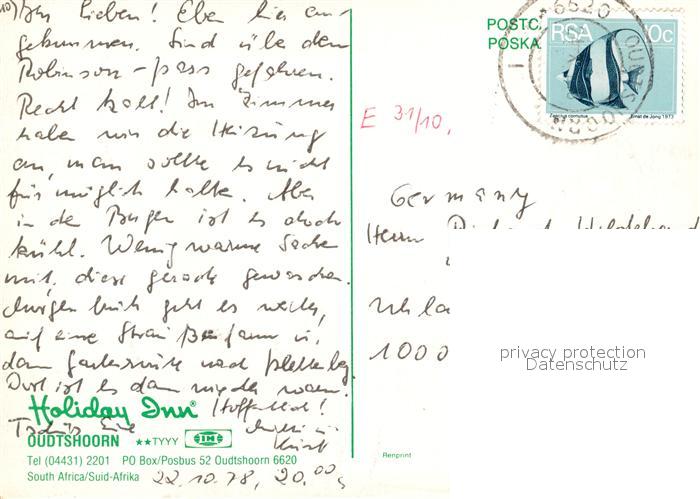 Ihr Lieben! Eben hier an-
gekommen. Sind über den
Robinson-pass gefahren.
Recht kalt! Im Zimmer
haben wir die Heizung
an, man sollte es nicht
für möglich halten. Aber
in den Bergen ist es doch
kühl. Wenig warme Sachen
mit, diese gerade gewaschen.
Morgen früh geht es weiter,
auf eine Straußenfarm u.
dann Gartenroute nach Plettenbg.
Dort ist es dann wieder warm.
Hoffentlich!
Tschüs Eure
Holiday Inn®
OUDTSHOORN ★★TYYY IHI
Tel (04431) 2201 PO Box/Posbus 52 Oudtshoorn 6620
South Africa/Suid-Afrika 22.10.78, 20.00
POSTC
POSKA
6620
OUDTSHOORN
RSA 10c
Zanclus cornutus Ernst de Jong 1973
E 31/10.
Germany
Herrn
1000
privacy protection
Datenschutz
Renprint